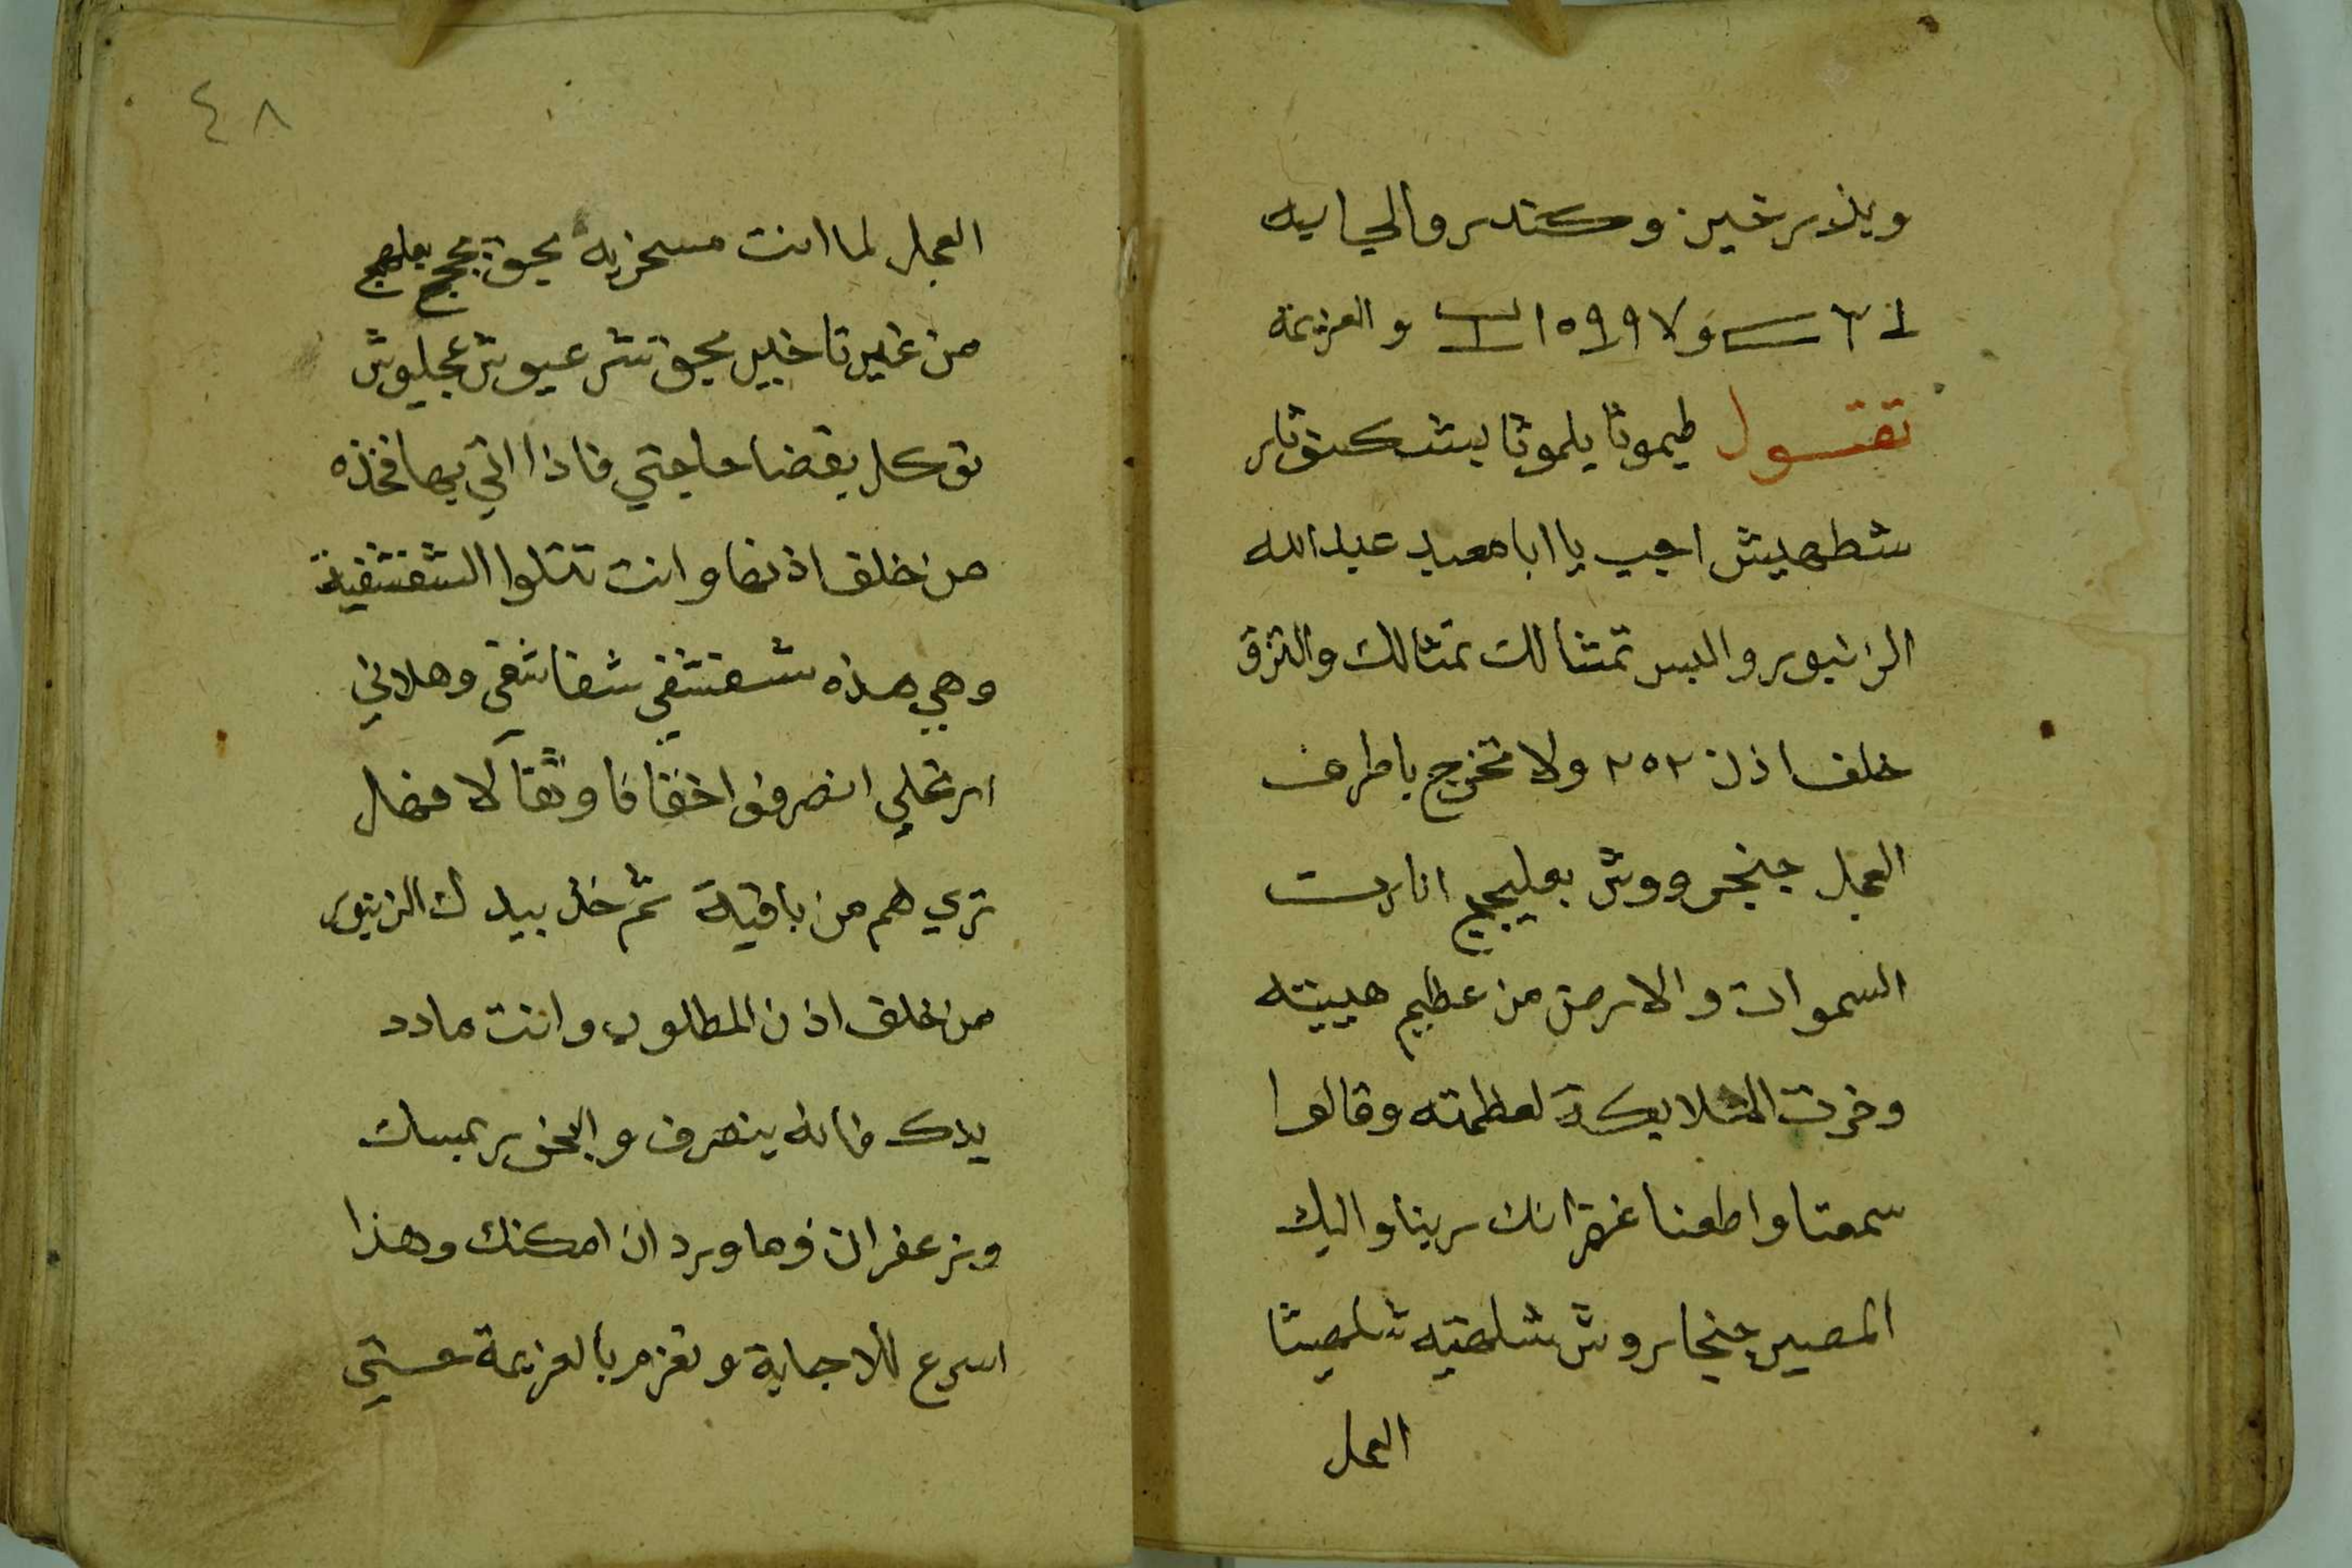 وبذر خس وكندر والجايه
والعزيمة
تقول طيموثا يلموثا بيشكنوثار
شطهيش اجيب يا ابا معبد عبد الله
الزنبور والبس تمثالك تمثالك والتزق
خلف اذن ٢٥٢ ولا تخرج يا طرف
العجل جنجروش بعليجج انارت
السموات والارض من عظيم هيبته
وخرت الملايكة لعظمته وقالوا
سمعنا واطعنا غفرانك ربنا واليك
المصير جنجاروش شلهتيه شلهيثا
العجل
٤٨
العجل لما انت مسخر به بحق
من غير تاخير بحق شر عيوش عجليوش
توكل بقضا حاجتي فاذا اتي بها فخذه
من خلف اذنها وانت تتلوا الشفشفية
وهي هذه شفشفي شفاشفي وهلاني
ارتحلي انصرفوا خفافا وثقالا فهل
تري لهم من باقية ثم خذ بيدك الزنبور
من خلف اذن المطلوب وانت مادد
يدك فانه ينصرف والبخور بمسك
وزعفران وماورد ان امكنك وهذا
اسرع للاجابة وتعزم بالعزيمة ستي